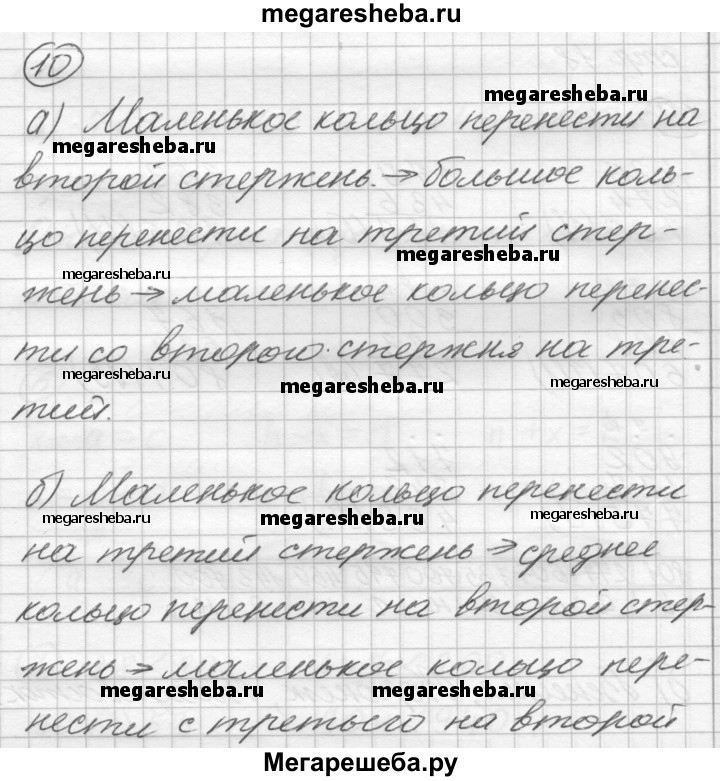 megaresheba.ru
10
megaresheba.ru
а) Маленькое кольцо перенести на
megaresheba.ru
второй стержень. → большое коль-
цо перенести на третий стер-
megaresheba.ru
megaresheba.ru
жень → маленькое кольцо перенес-
ти со второго стержня на тре-
megaresheba.ru megaresheba.ru megaresheba.ru
тий.
б) Маленькое кольцо перенести
megaresheba.ru megaresheba.ru megaresheba.ru
на третий стержень → среднее
кольцо перенести на второй стер-
жень → маленькое кольцо пере-
megaresheba.ru megaresheba.ru
нести с третьего на второй
Мегарешеба.ру